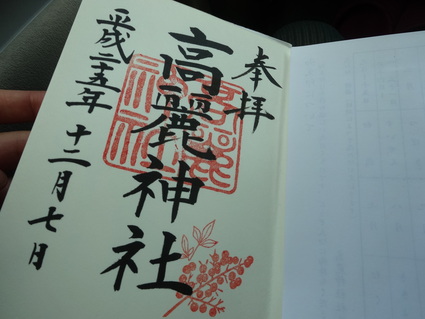 奉拝
高麗神社
平成二十五年十二月七日